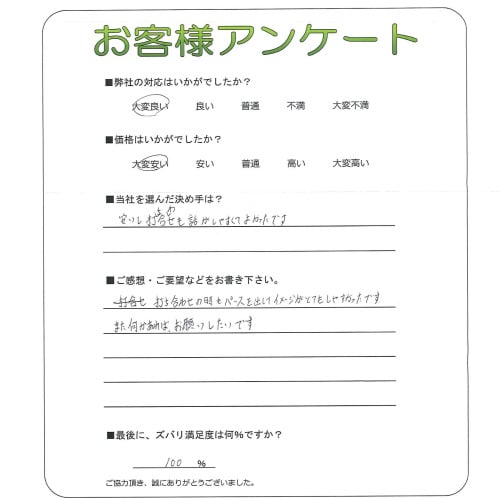 お客様アンケート
■弊社の対応はいかがでしたか？
大変良い 良い 普通 不満 大変不満
■価格はいかがでしたか？
大変安い 安い 普通 高い 大変高い
■当社を選んだ決め手は？
安いし打合せも話がしやすくてよかったです
■ご感想・ご要望などをお書き下さい。
打合せ 打ち合わせの時もパースを出してイメージがとてもしやすかったです
また何かあれば、お願いしたいです
■最後に、ズバリ満足度は何%ですか？
100 %
ご協力頂き、誠にありがとうございました。